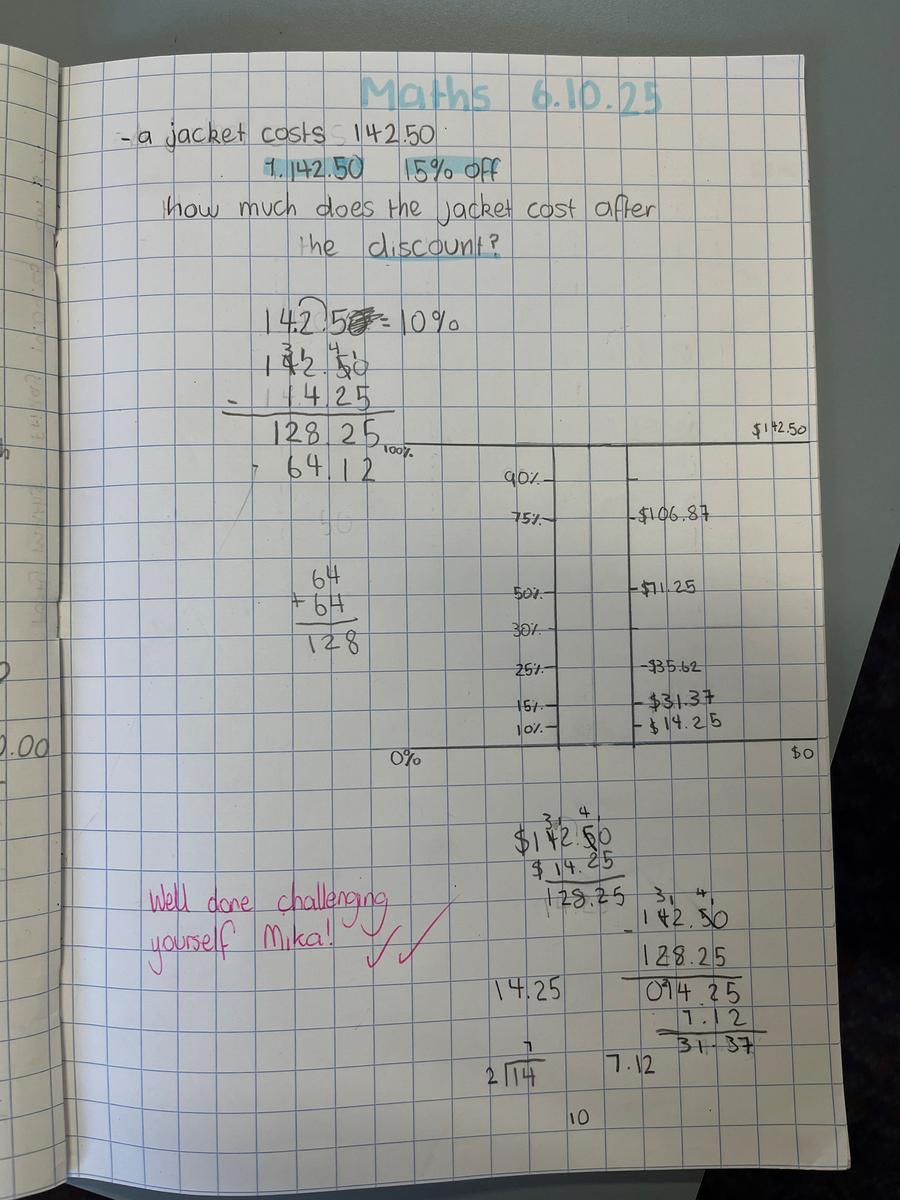 Maths 6.10.25
- a jacket costs 142.50
1.142.50 15% off
how much does the jacket cost after
the discount?
142.5 = 10%
3 1 4 1
142.50
- 14.25
128.25
64.12
64
+ 64
128
100% $142.50
90%
75% $106.87
50% $71.25
30%
25% $35.62
15% $31.37
10% $14.25
0% $0
3 1 4 1
$142.50
$ 14.25
128.25
3 1 4 1
- 142.50
128.25
14.25
7.12
31.37
14.25
7
2 14
7.12
10
Well done challenging
yourself Mika!
0.00